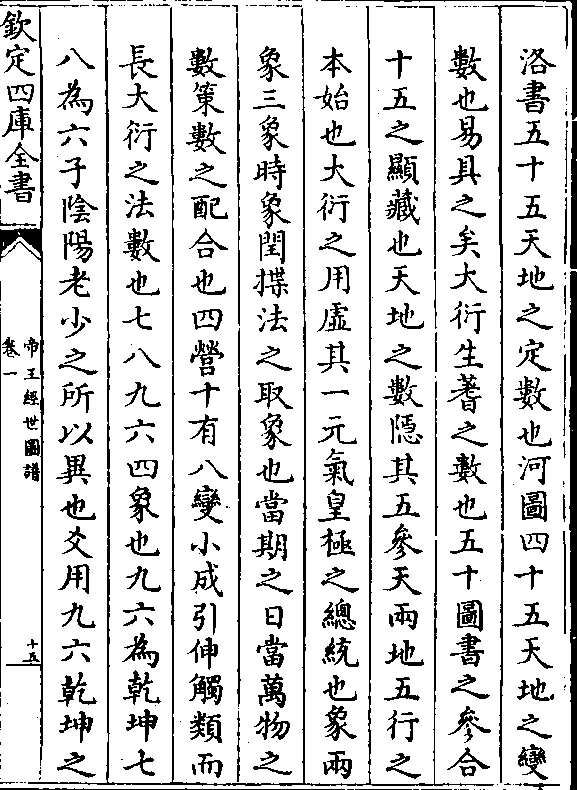 洛書五十五天地之定數也河圖四十五天地之變
數也易具之矣大衍生蓍之數也五十圖書之參合
十五之顯藏也天地之數隱其五參天兩地五行之
本始也大衍之用虛其一元氣皇極之總統也象兩
象三象時象閏揲法之取象也當期之日當萬物之
數策數之配合也四營十有八變小成引伸觸類而
長大衍之法數也七八九六四象也九六為乾坤七
八為六子陰陽老少之所以異也爻用九六乾坤之
欽定四庫全書
帝王經世圖譜
卷一
十五